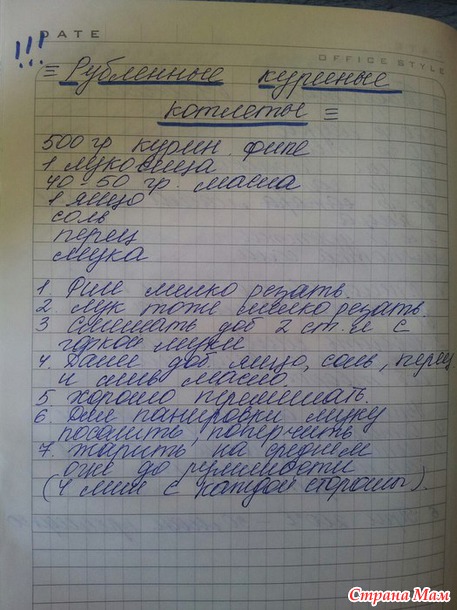 !!!
DATE
OFFICE STYLE
= Рубленные куриные
котлеты =
500 гр курин. филе
1 луковица
40-50 гр. масла
1 яйцо
соль
перец
мука
1. Филе мелко резать
2. Лук тоже мелко резать.
3 Смешать доб 2 ст.л с
горкой муки
4. Далее доб яйцо, соль, перец
и слив масло.
5 хорошо перемешать.
6. Для панировки муку
посолить, поперчить
7. Жарить на среднем
огне до румяности
(4 мин с каждой стороны).
Страна Мам